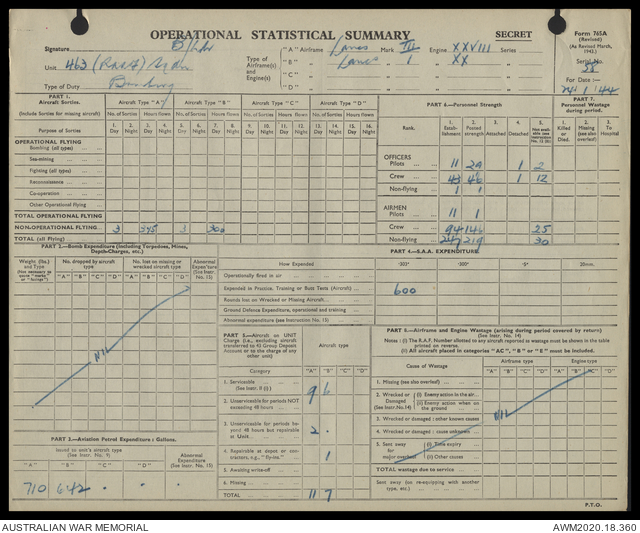 OPERATIONAL STATISTICAL SUMMARY
SECRET
Form 765A
(Revised)
(As Revised March, 1942.)
Signature
Unit 463 (RAAF) Sqdn
Type of Duty Bombing
Type of Airframe(s) and Engine(s)
"A" Airframe Lancs Mark III Engine XXVIII Series
"B" Lancs 1 XX
"C"
"D"
Serial No. 58
For Date :—
PART 1.
Aircraft Sorties.
(Include Sorties for missing aircraft)
Aircraft Type "A"
Aircraft Type "B"
Aircraft Type "C"
Aircraft Type "D"
No. of Sorties Hours flown No. of Sorties Hours flown No. of Sorties Hours flown No. of Sorties Hours flown
Purpose of Sorties
1. Day 2. Night 3. Day 4. Night 5. Day 6. Night 7. Day 8. Night 9. Day 10. Night 11. Day 12. Night 13. Day 14. Night 15. Day 16. Night
OPERATIONAL FLYING
Bombing (all types)
Sea-mining
Fighting (all types)
Reconnaissance
Co-operation
Other Operational Flying
TOTAL OPERATIONAL FLYING
NON-OPERATIONAL FLYING 3 345 3 300
TOTAL (all flying)
PART 6.—Personnel Strength
Rank.
1. Establishment
2. Posted strength
3. Attached
4. Detached
5. Non available (see Instruction No. 12 (b))
OFFICERS
Pilots 11 29 1 2
Crew 43 46 1 12
Non-flying 1 1
AIRMEN
Pilots 11 1
Crew 94 146 25
Non-flying 247 219 30
PART 7.
Personnel Wastage during period.
1. Killed or Died.
2. Missing (see also overleaf)
3. To Hospital
PART 2.—Bomb Expenditure (Including Torpedoes, Mines, Depth-Charges, etc.)
Weight (lbs.) and Type
No. dropped by aircraft type
No. lost on missing or wrecked aircraft type
Abnormal Expend'ture (See Instr. No. 15)
"A" "B" "C" "D" "A" "B" "C" "D"
NIL
PART 4.—S.A.A. EXPENDITURE
How Expended ·303" ·500" ·5" 20mm.
Operationally fired in air
Expended in Practice, Training or Butt Tests (Aircraft) 600
Rounds lost on Wrecked or Missing Aircraft
Ground Defence Expenditure, operational and training
Abnormal expenditure (see Instruction No. 15)
PART 3.—Aviation Petrol Expenditure : Gallons.
Issued to unit's aircraft type (See Instr. No. 9)
Abnormal Expenditure (See Instr. No. 15)
"A" "B" "C" "D"
710 642
PART 5.—Aircraft on UNIT Charge (i.e., excluding aircraft transferred to 43 Group Deposit Account or to the charge of any other unit)
Aircraft type
Category "A" "B" "C" "D"
1. Serviceable (See Instr. 11 (i)) 9 6
2. Unserviceable for periods NOT exceeding 48 hours
3. Unserviceable for periods beyond 48 hours but repairable at Unit 2
4. Repairable at depot or contractors, e.g., "fly-ins." 1
5. Awaiting write-off
6. Missing
TOTAL 11 7
PART 8.—Airframe and Engine Wastage (arising during period covered by return)
(See Instr. No. 14)
Notes : (i) The R.A.F. Number allotted to any aircraft reported as wastage must be shown in the table printed on reverse.
(ii) All aircraft placed in categories "AC", "B" or "E" must be included.
Cause of Wastage
Airframe type
Engine type
"A" "B" "C" "D" "A" "B" "C" "D"
1. Missing (see also overleaf)
2. Wrecked or Damaged (See Instr. No.14)
(i) Enemy action in the air
(ii) Enemy action when on the ground
3. Wrecked or damaged : other known causes
4. Wrecked or damaged : cause unknown
5. Sent away for major overhaul
(i) Time expiry
(ii) Other causes
TOTAL wastage due to service
Sent away (on re-equipping with another type, etc.)
NIL
P.T.O.
AUSTRALIAN WAR MEMORIAL
AWM2020.18.360